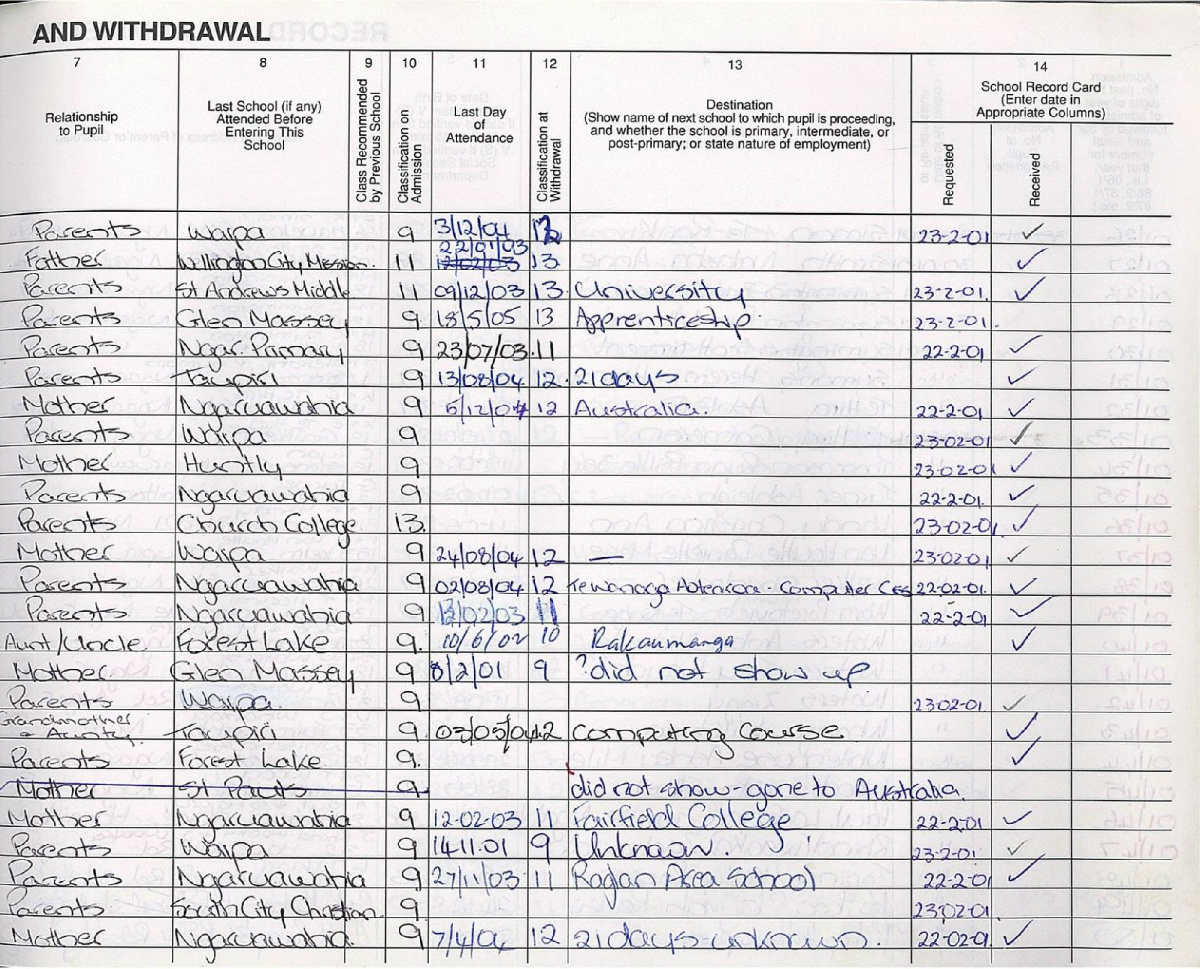 AND WITHDRAWAL
7 8 9 10 11 12 13 14
Relationship to Pupil
Last School (if any) Attended Before Entering This School
Class Recommended by Previous School
Classification on Admission
Last Day of Attendance
Classification at Withdrawal
Destination
(Show name of next school to which pupil is proceeding, and whether the school is primary, intermediate, or post-primary; or state nature of employment)
School Record Card (Enter date in Appropriate Columns)
Requested
Received
Parents Waipa 9 3/12/04 12 23-2-01 ✓
22/01/03
Father Wellington City Mission. 11 12/02/03 13 ✓
Parents St Andrews Middle 11 09/12/03 13. University 23-2-01. ✓
Parents Glen Massey 9 18/5/05 13 Apprenticeship. 23-2-01.
Parents Ngar. Primary 9 23/07/03. 11 22-2-01 ✓
Parents Taupiri 9 13/08/04 12. 21 days ✓
Mother Ngaruawahia 9 5/12/04 12 Australia. 22-2-01 ✓
Parents Waipa 9 23-02-01 ✓
Mother Huntly 9 23-02-01 ✓
Parents Ngaruawahia 9 22-2-01. ✓
Parents Church College 13. 23-02-01. ✓
Mother Waipa 9 24/08/04 12 — 23-02-01 ✓
Parents Ngaruawahia 9 02/08/04 12 Aotearoa - Computer 22-02-01. ✓
Parents Ngaruawahia 9 12/02/03 11 22-2-01 ✓
Aunt/Uncle. Forest Lake 9. 10/6/02 10 Rakaumanga ✓
Mother Glen Massey 9 8/2/01 9 ?did not show up
Parents Waipa. 9 23-02-01 ✓
Grandmother
+ Aunty. Taupiri 9. 03/05/04 12 Computing Course ✓
Parents Forest Lake. 9. ✓
Mother St Pauls 9. did not show - gone to Australia.
Mother Ngaruawahia 9 12-02-03 11 Fairfield College 22-2-01 ✓
Parents Waipa 9 14.11.01 9 Unknown. 23-2-01 ✓
Parents Ngaruawahia 9 27/11/03 11 Raglan Area School 22-2-01 ✓
Parents South City Christian. 9. 23-02-01.
Mother Ngaruawahia. 9 7/4/04 12 21 days-unknown. 22-02-01. ✓